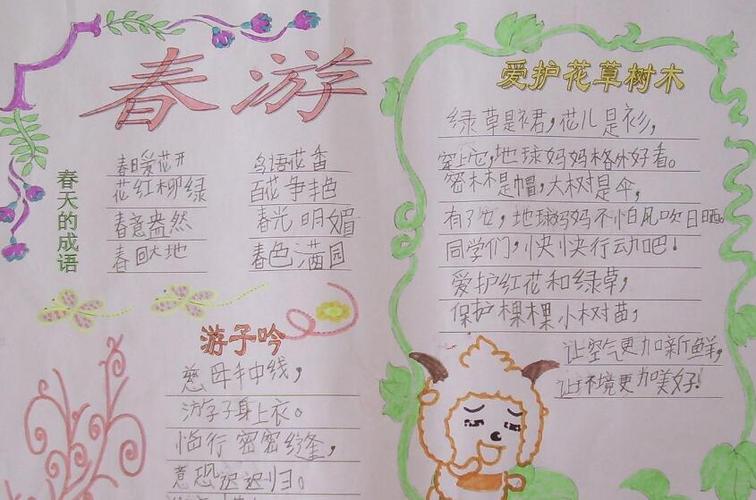 春游
春天的成语
春日爱花开 鸟语花香
花红柳绿 百花争艳
春意盎然 春光明媚
春回大地 春色满园
游子吟
慈母手中线，
游子身上衣。
临行密密缝，
意恐迟迟归。
爱护花草树木
绿草是裙，花儿是衫，
穿上它，地球妈妈格外好看。
密林是帽，大树是伞，
有了它，地球妈妈不怕风吹日晒。
同学们，快快行动吧！
爱护红花和绿草，
保护棵棵小树苗，
让空气更加新鲜，
让环境更加美好！